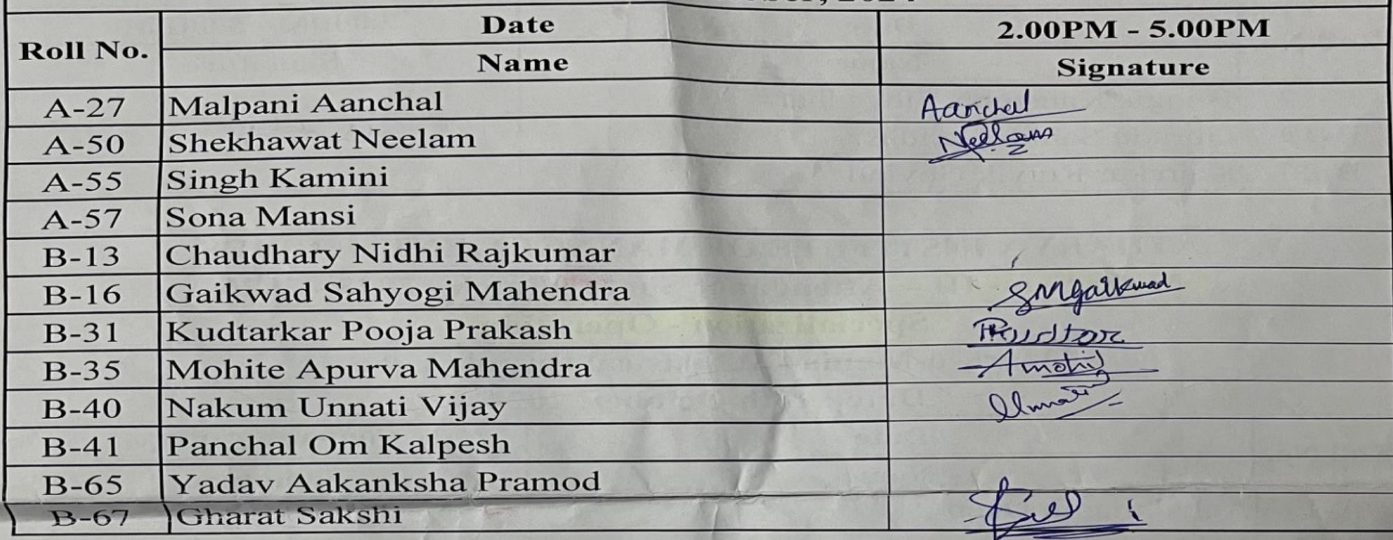 Roll No. Date 2.00PM - 5.00PM
Name Signature
A-27 Malpani Aanchal Aanchal
A-50 Shekhawat Neelam Neelam
A-55 Singh Kamini
A-57 Sona Mansi
B-13 Chaudhary Nidhi Rajkumar
B-16 Gaikwad Sahyogi Mahendra SMGaikwad
B-31 Kudtarkar Pooja Prakash
B-35 Mohite Apurva Mahendra
B-40 Nakum Unnati Vijay
B-41 Panchal Om Kalpesh
B-65 Yadav Aakanksha Pramod
B-67 Gharat Sakshi